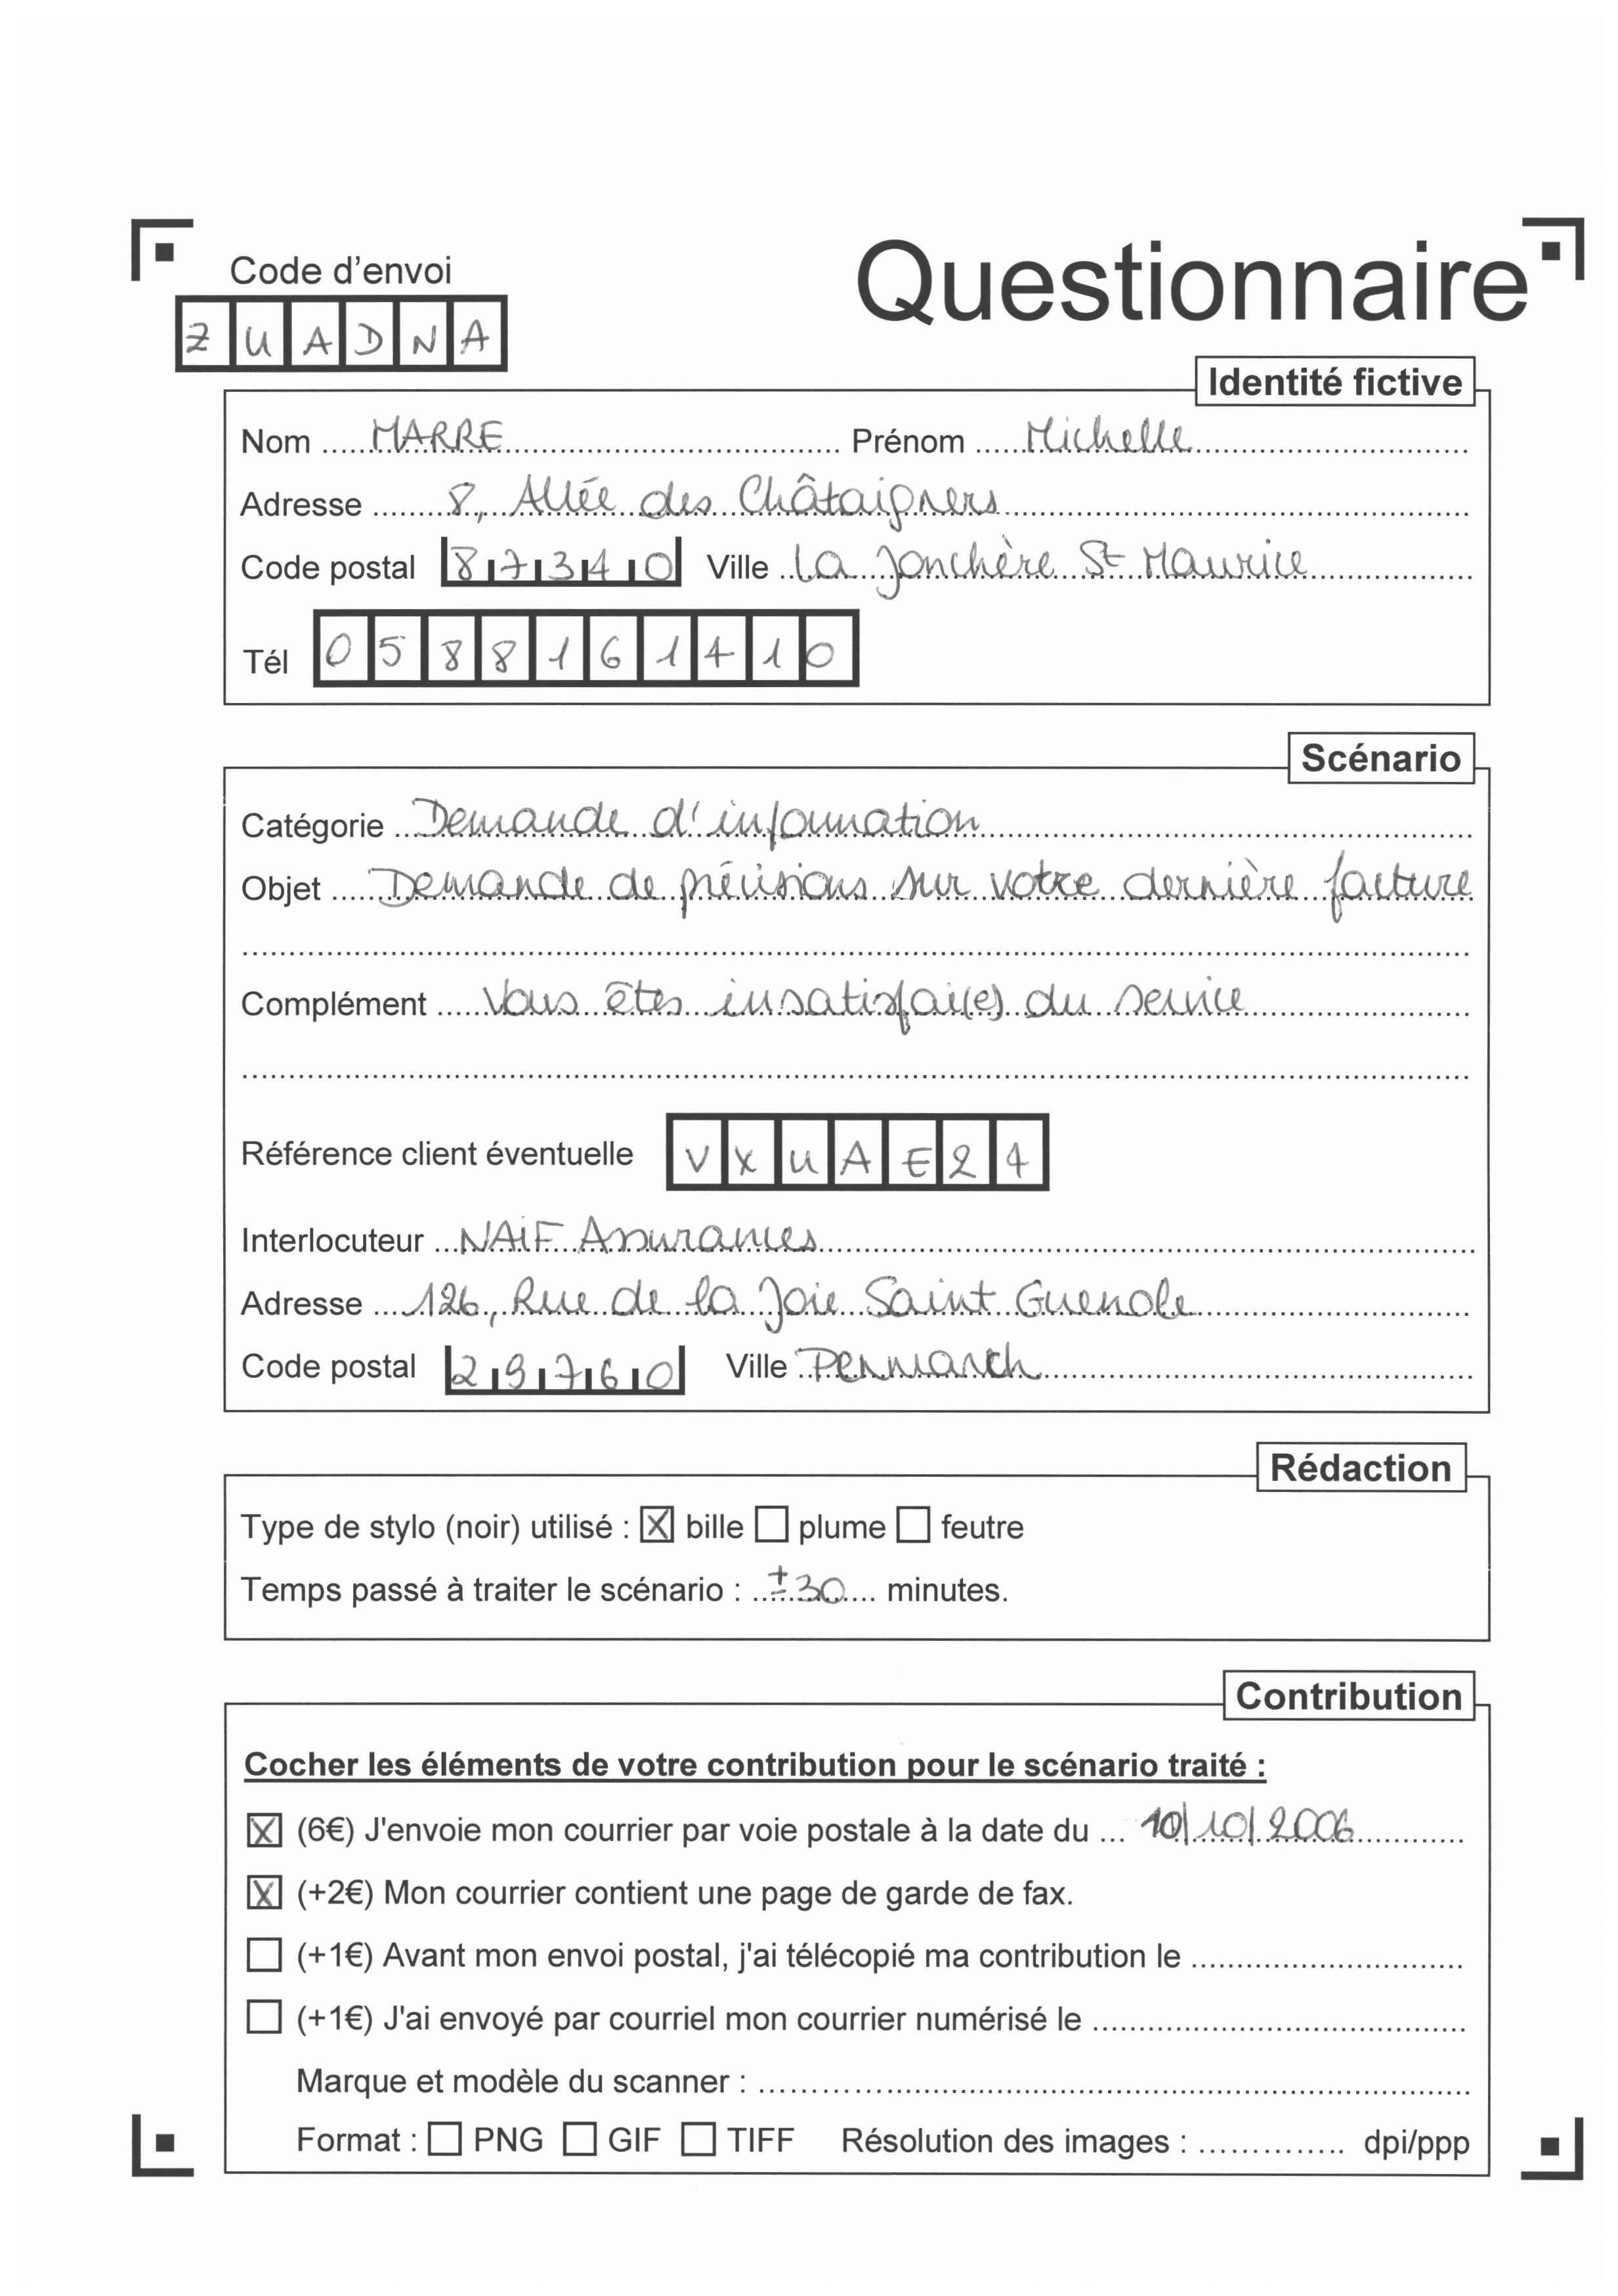 Code d'envoi
Questionnaire
Z U A D N A
Identité fictive
Nom MARRE Prénom Michelle
Adresse 8, Allée des Châtaigners
Code postal 87340 Ville La Jonchère St Maurice
Tél 0588161410
Scénario
Catégorie Demande d'information
Objet Demande de précisions sur votre dernière facture
Complément Vous êtes insatisfai(e) du service
Référence client éventuelle VXUAE24
Interlocuteur NAIF Assurances
Adresse 126, Rue de la Joie Saint Guenole
Code postal 29760 Ville Penmarch
Rédaction
Type de stylo (noir) utilisé : X bille plume feutre
Temps passé à traiter le scénario : ±30 minutes.
Contribution
Cocher les éléments de votre contribution pour le scénario traité :
X (6€) J'envoie mon courrier par voie postale à la date du ... 10/10/2006
X (+2€) Mon courrier contient une page de garde de fax.
(+1€) Avant mon envoi postal, j'ai télécopié ma contribution le
(+1€) J'ai envoyé par courriel mon courrier numérisé le
Marque et modèle du scanner :
Format : PNG GIF TIFF Résolution des images : dpi/ppp